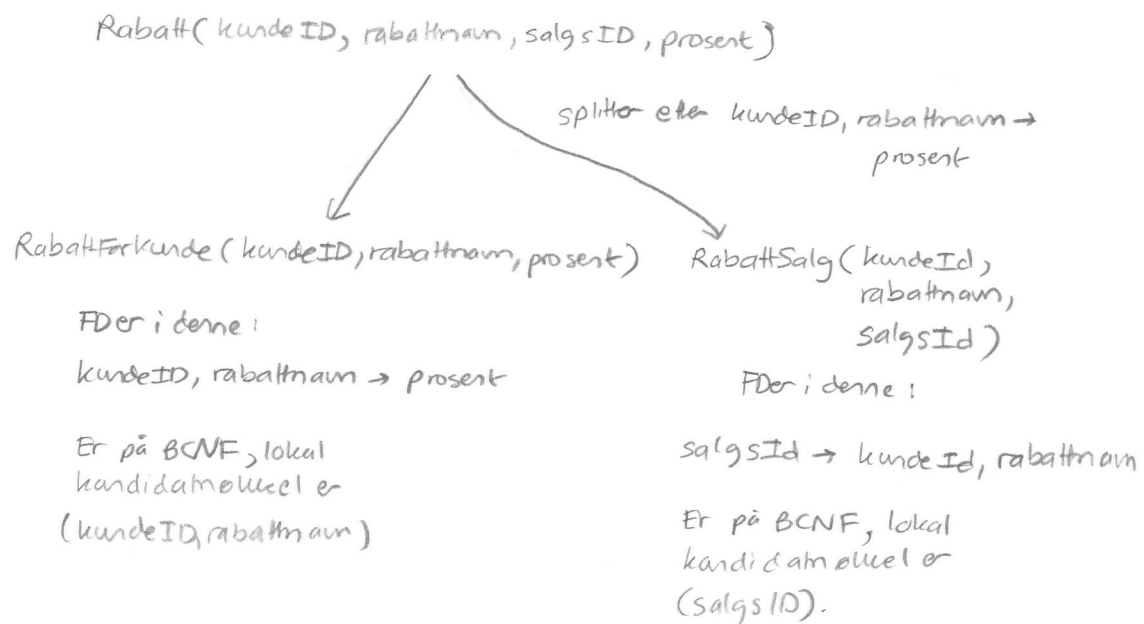 Rabatt(kundeID, rabattnavn, salgsID, prosent)
splitter etter kundeID, rabattnavn →
prosent
RabattForKunde(kundeID, rabattnavn, prosent)
FDer i denne:
kundeID, rabattnavn → prosent
Er på BCNF, lokal
kandidatnøkkel er
(kundeID, rabattnavn)
RabattSalg(kundeId,
rabattnavn,
salgsId)
FDer i denne:
salgsId → kundeId, rabattnavn
Er på BCNF, lokal
kandidatnøkkel er
(salgsID).